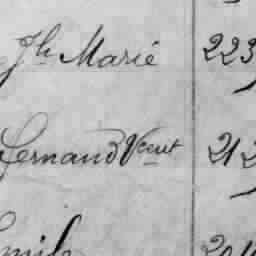 Jh Marié 223
Fernand Vcent 212
Emile 204